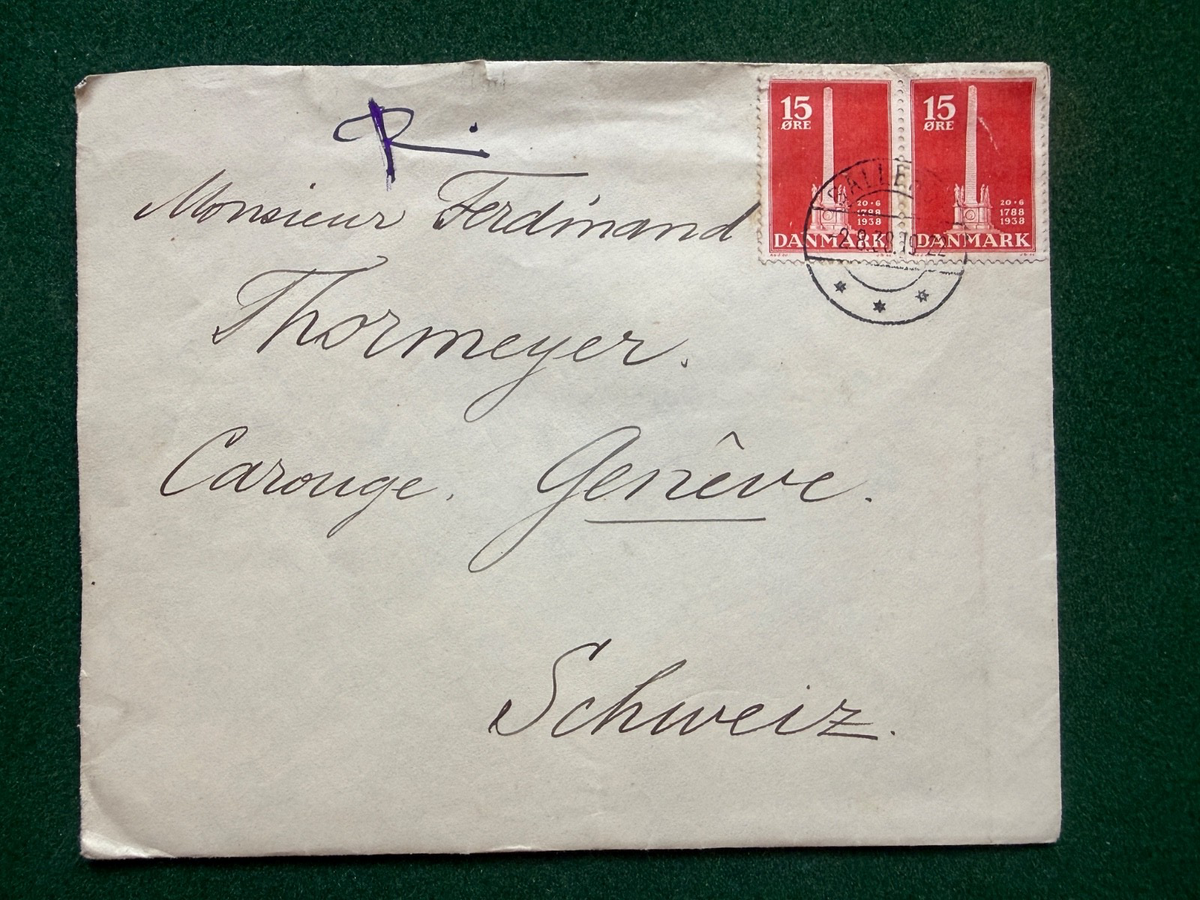 R.
Monsieur Ferdinand
Thormeyer.
Carouge. Genêve.
Schweiz.
15
ØRE
20·6
1788
1938
DANMARK
15
ØRE
20·6
1788
1938
DANMARK
-2.8.38.19-22